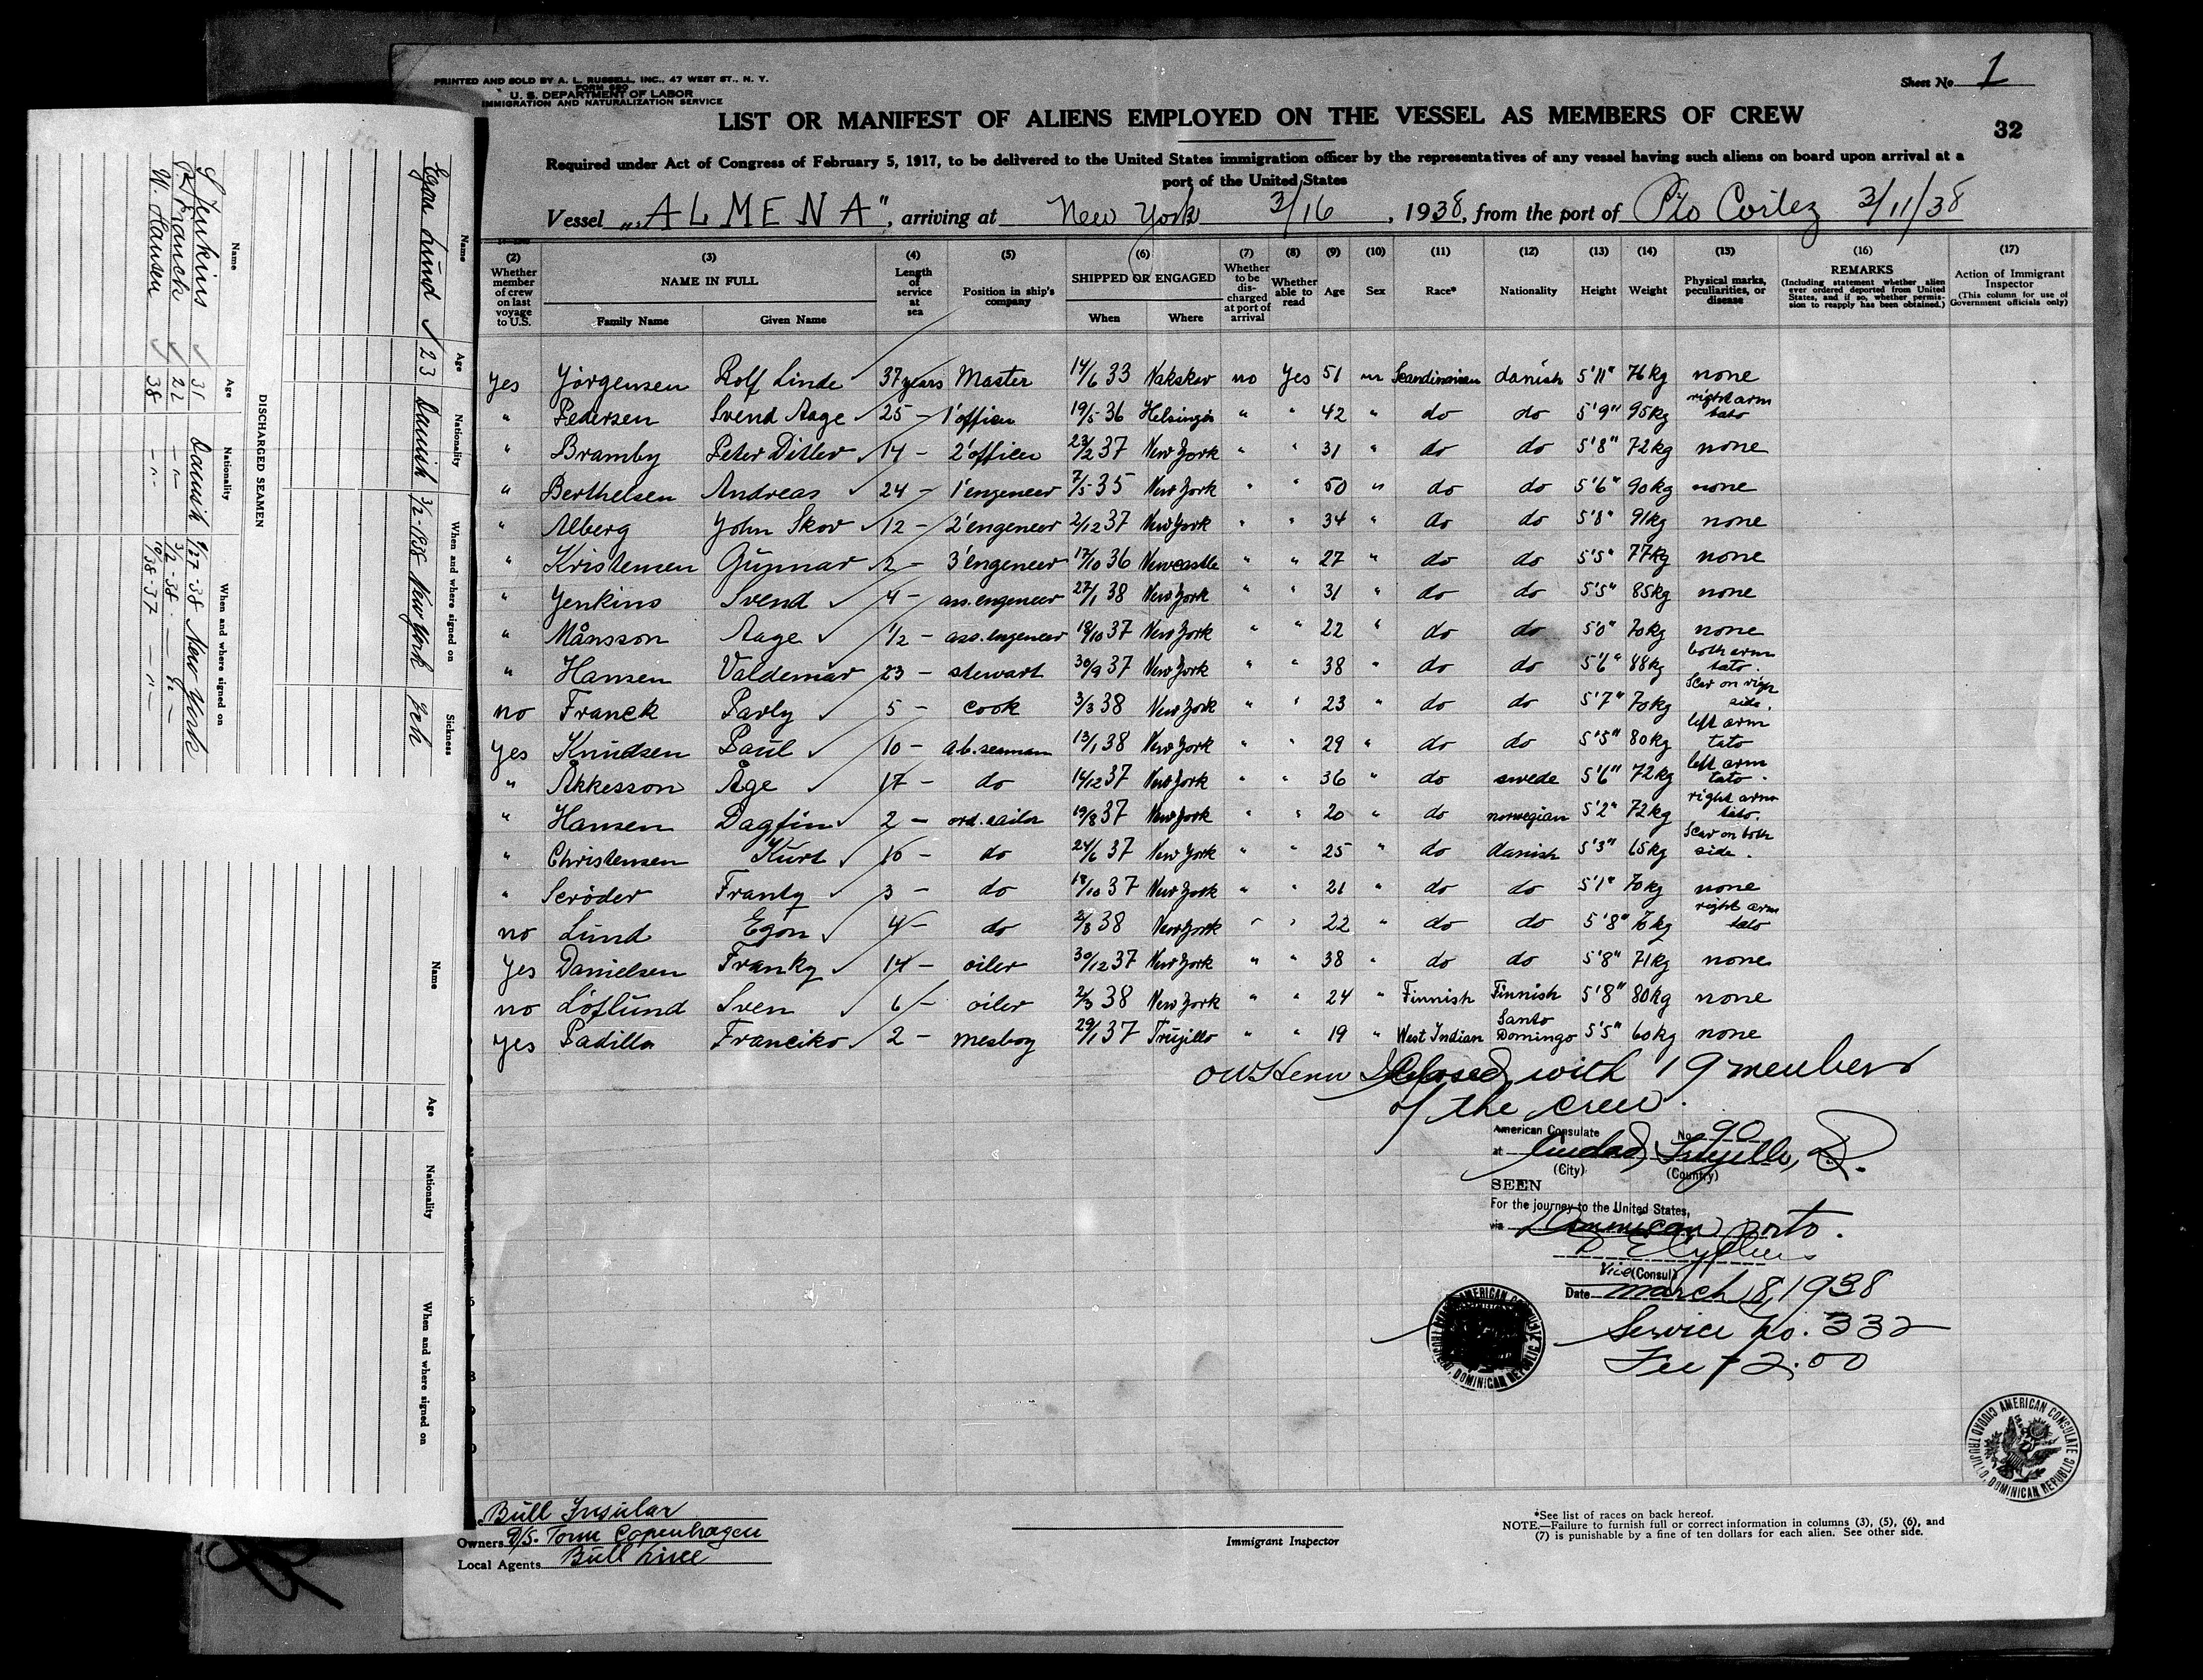 PRINTED AND SOLD BY A. L. RUSSELL, INC., 47 WEST ST., N. Y.
FORM 680
U. S. DEPARTMENT OF LABOR
IMMIGRATION AND NATURALIZATION SERVICE
Sheet No. 1
LIST OR MANIFEST OF ALIENS EMPLOYED ON THE VESSEL AS MEMBERS OF CREW
32
Required under Act of Congress of February 5, 1917, to be delivered to the United States immigration officer by the representatives of any vessel having such aliens on board upon arrival at a
port of the United States
Vessel „ALMENA", arriving at New York 3/16, 1938, from the port of Pto Cortez 3/11/38
(2) Whether member of crew on last voyage to U.S. (3) NAME IN FULL Family Name Given Name (4) Length of service at sea (5) Position in ship's company (6) SHIPPED OR ENGAGED When Where (7) Whether to be discharged at port of arrival (8) Whether able to read (9) Age (10) Sex (11) Race* (12) Nationality (13) Height (14) Weight (15) Physical marks, peculiarities, or disease (16) REMARKS (Including statement whether alien ever ordered deported from United States, and if so, whether permission to reapply has been obtained.) (17) Action of Immigrant Inspector (This column for use of Government officials only)
yes Jörgensen Rolf Linde 37 years Master 14/6 33 Nakskov no Yes 51 m Scandinavian danish 5'11" 76 kg none
" Pedersen Svend Aage 25 - 1' officer 19/5 36 Helsingör " " 42 " do do 5'9" 95 kg right arm tato
" Bramby Peter Ditlev 14 - 2' officer 23/2 37 New York " " 31 " do do 5'8" 72 kg none
" Berthelsen Andreas 24 - 1' engeneer 7/5 35 New York " " 50 " do do 5'6" 90 kg none
" Alberg John Skov 12 - 2' engeneer 2/12 37 New York " " 34 " do do 5'8" 91 kg none
" Kristensen Gunnar 2 - 3' engeneer 17/10 36 Newcastle " " 27 " do do 5'5" 77 kg none
" Jenkins Svend 4 - ass. engeneer 27/1 38 New York " " 31 " do do 5'5" 85 kg none
" Månsson Aage 1/2 - ass. engeneer 18/10 37 New York " " 22 " do do 5'0" 70 kg none
" Hansen Valdemar 23 - stewart 30/9 37 New York " " 38 " do do 5'6" 88 kg both arm tato.
no Franck Parly 5 - cook 3/3 38 New York " " 23 " do do 5'7" 70 kg Scar on side.
Yes Knudsen Paul 10 - a.b. seaman 13/1 38 New York " " 29 " do do 5'5" 80 kg left arm tato
" Åkkesson Åge 17 - do 14/12 37 New York " " 36 " do swede 5'6" 72 kg left arm tato.
" Hansen Dagfin 2 - ord. sailor 19/8 37 New York " " 20 " do norwegian 5'2" 72 kg right arm tato.
" Christensen Kurt 10 - do 24/6 37 New York " " 25 " do danish 5'3" 65 kg Scar on both side.
" Scröder Frantz 3 - do 18/10 37 New York " " 21 " do do 5'1" 70 kg none
no Lund Egon 4 - do 2/3 38 New York " " 22 " do do 5'8" 76 kg right arm tato
Yes Danielsen Frank 14 - oiler 30/12 37 New York " " 38 " do do 5'8" 71 kg none
no Löflund Sven 6 - oiler 2/3 38 New York " " 24 " Finnish Finnish 5'8" 80 kg none
yes Padilla Franciko 2 - mesboy 29/1 37 Trujillo " " 19 " West Indian Santo Domingo 5'5" 60 kg none
Closed with 19 members
of the crew.
American Consulate No. 90
at Ciudad Trujillo, D.R.
(City) (Country)
SEEN
For the journey to the United States,
via Dominican ports.
Vice (Consul)
Date March 8, 1938
Service No. 332
Fee $2.00
AMERICAN CONSULATE CIUDAD TRUJILLO, DOMINICAN REPUBLIC
AMERICAN CONSULATE CIUDAD TRUJILLO, DOMINICAN REPUBLIC
Bull Insular
Owners D/S. Torm Copenhagen
Local Agents Bull Line
Immigrant Inspector
*See list of races on back hereof.
NOTE.—Failure to furnish full or correct information in columns (3), (5), (6), and
(7) is punishable by a fine of ten dollars for each alien. See other side.
Name Age Nationality When and where signed on Sickness
Egon Lund 23 Danish 3/2-1938 New York
DISCHARGED SEAMEN
Name Age Nationality When and where signed on
S Jenkins 31 Danish 1/27-38 New York
P. Franck 22 -"- 3/2-38 -"-
W. Hansen 38 -"- -37 -"-
Name Age Nationality When and where signed on